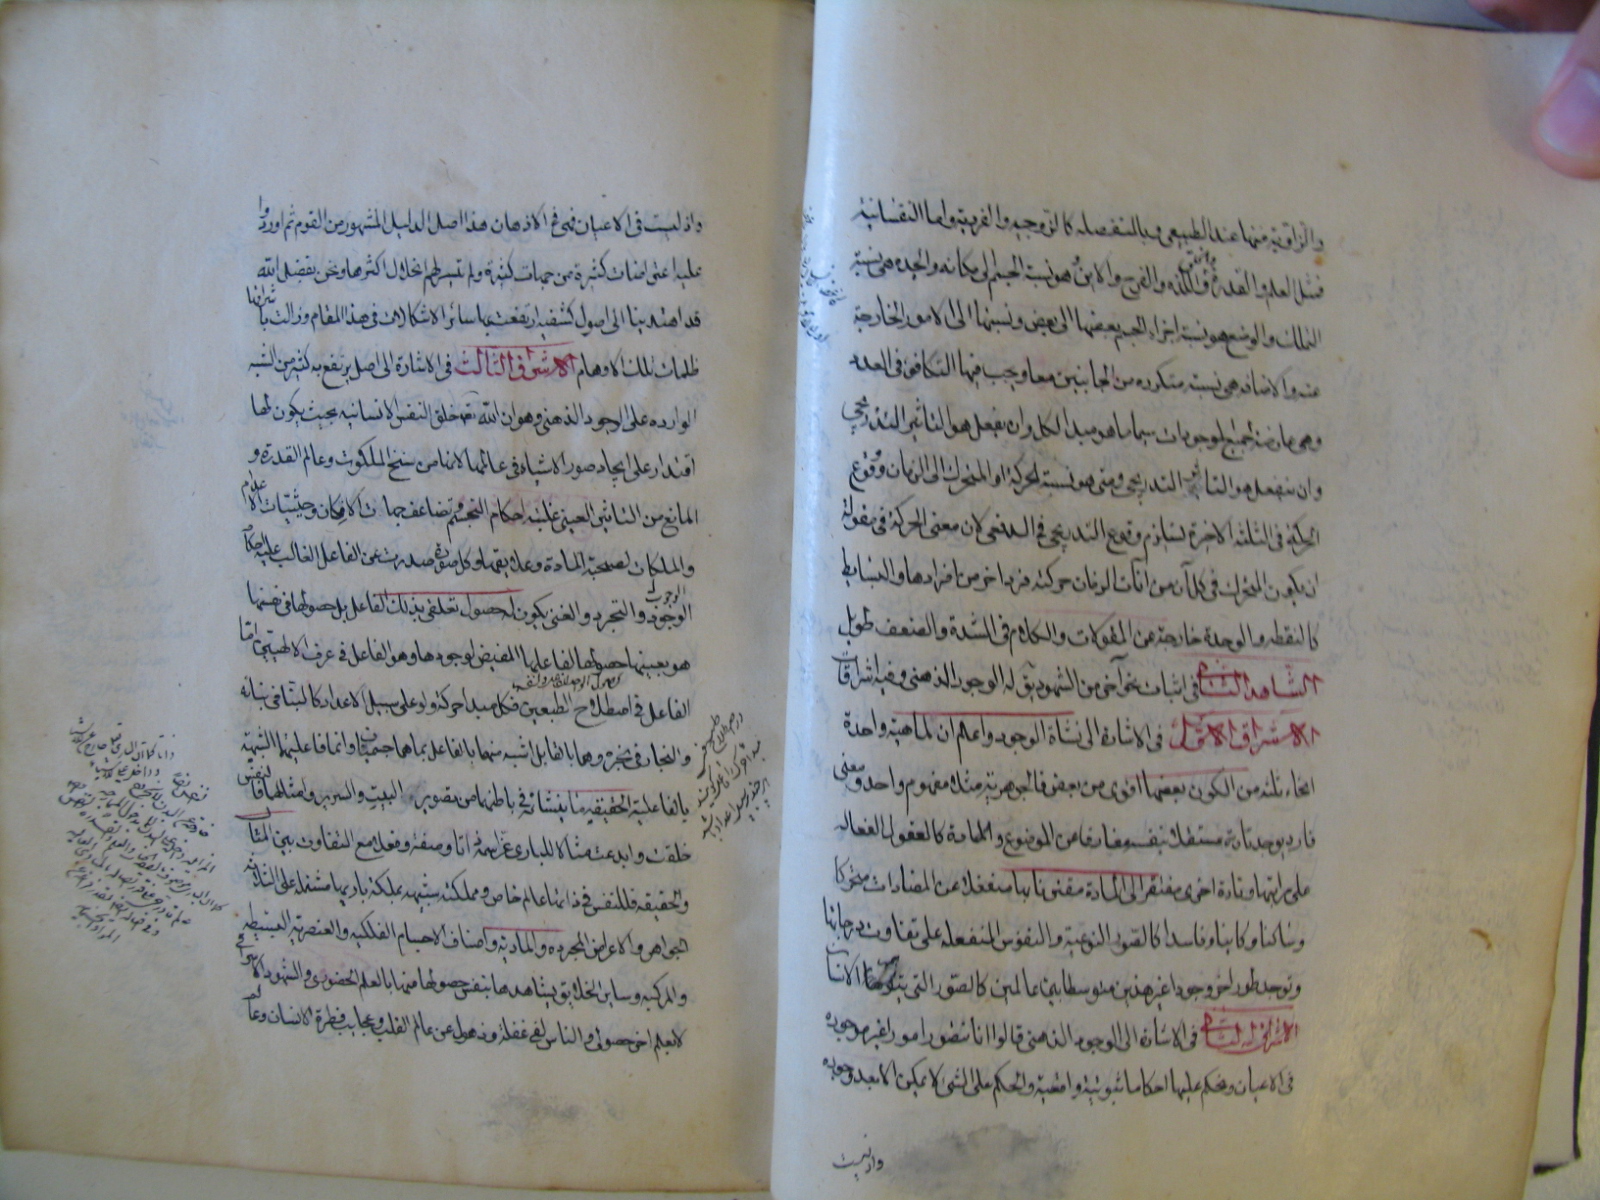 والزاوية منها عند الطبيعي وبالمنفصلة كالزوجية والفردية واما النفسانية
فمثل العلم والقدرة واللذة والفرح والاين هو نسبة الجسم الى مكانه والجدة هي نسبة
التملك والوضع هو نسبة اجزاء الجسم بعضها الى بعض ونسبتها الى الامور الخارجة
عنه والاضافه هي نسبة متكرره من الجانبين معا ويجب فيها التكافؤ في العدد
وهي عارضة لجميع الموجودات سيما ما هو مبدا الكل وان يفعل هو التاثير التدريجي
وان ينفعل هو التاثر التدريجي ومتى هو نسبة الحركة او المتحرك الى الزمان ووقوع
الحركة في الثلثة الاخيرة يستلزم وقوع التدريجي في الدفعي لان معنى الحركة في مقولة
ان يكون المتحرك في كل آن من آنات الزمان حركته فرد اخر من افرادها والبسايط
كالنقطه والوحدة خارجة عن المقولات والكلام في الشدة والضعف طويل
الشاهد الثاني في اثبات نحو آخر من الشهود يق له الوجود الذهني وفيه اشراقات
الاشراق الاول في الاشارة الى نشاة الوجود واعلم ان لماهية واحدة
انحاء ثلثه من الكون بعضها اقوى من بعض فالجوهرية مثلا مفهوم واحد ومعنى
فارد يوجد تارة مستقلا بنفسه مفارقا عن الموضوع والمادة كالعقول الفعاله
على مراتبها وتارة اخرى مفتقرا الى المادة مقترنا بها منفعلا عن المضادات متحركا
وساكنا وكاينا وفاسدا كالصور النوعية والنفوس المنفعله على تفاوت درجاتها
وتوجد طورا آخر وجودا غير هذين متوسطا بين عالمين كالصور التي يتوهمها الانسان
الاشراق الثاني في الاشارة الى الوجود الذهني قالوا انا نتصور امورا غير موجوده
في الاعيان ونحكم عليها احكاما ثبوتية واقعية والحكم على الشي لا يمكن الا بعد وجوده
واذ ليست
واذ ليست في الاعيان فهي في الاذهان هذا اصل الدليل المشهور من القوم ثم اوردوا
عليه اعتراضات كثيرة من جهات كثيرة ولم تيسر لهم انحلال اكثرها ونحن بفضل الله
قد اهتدينا الى اصول كشفية ارتفعت بها سائر الاشكالات في هذا المقام وزالت باشراقها
ظلمات تلك الاوهام الاشراق الثالث في الاشارة الى اصل يرتفع به كثير من الشبه
الوارده على الوجود الذهني وهو ان الله تعه خلق النفس الانسانيه بحيث يكون لها
اقتدار على ايجاد صور الاشياء في عالمها لانها من سنخ الملكوت وعالم القدرة و
المانع من التاثير العيني غلبة احكام التجسم وتضاعف جهات الامكان وحيثيات الاعدام
والملكات لصحبة المادة وعلايقها وكل صورة صدرت عن الفاعل الغالب عليه احكام
الوجوب
الوجود والتجرد والغنى يكون له حصول تعلقي بذلك الفاعل بل حصولها في نفسها
هو بعينها حصولها لفاعلها المفيض لوجودها وهو الفاعل في عرف الالهيين اما
الفاعل في اصطلاح الطبعيين فكل مبدا حركة ولو على سبيل الاعداد كالبناء في بنائه
والنجار في نجره وهما بالقابل اشبه منهما بالفاعل بما هما جسمانيا وانما فاعليهما الشبيهة
بالفاعلية الحقيقية ما ينشاء في باطنهما من تصوير البيت والسرير وامثالهما فالنفس
خلقت وابدعت مثالا للباري عز اسمه ذاتا وصفة وفعلا مع التفاوت بين المثال
والحقيقه فللنفس في ذاتها عالم خاص ومملكة شبيهه بمملكة باريها مشتمله على امثلة
الجواهر والاعراض المجرده والمادية واصناف الاجسام الفلكيه والعنصرية البسيطه
والمركبه وساير الخلايق يشاهدها بنفس حصولها منها بالعلم الحضوري والشهود الاشراقي
لا بعلم اخر حصولي والناس لفي غفلة وذهول عن عالم القلب وعجايب فطرة الانسان وعالم